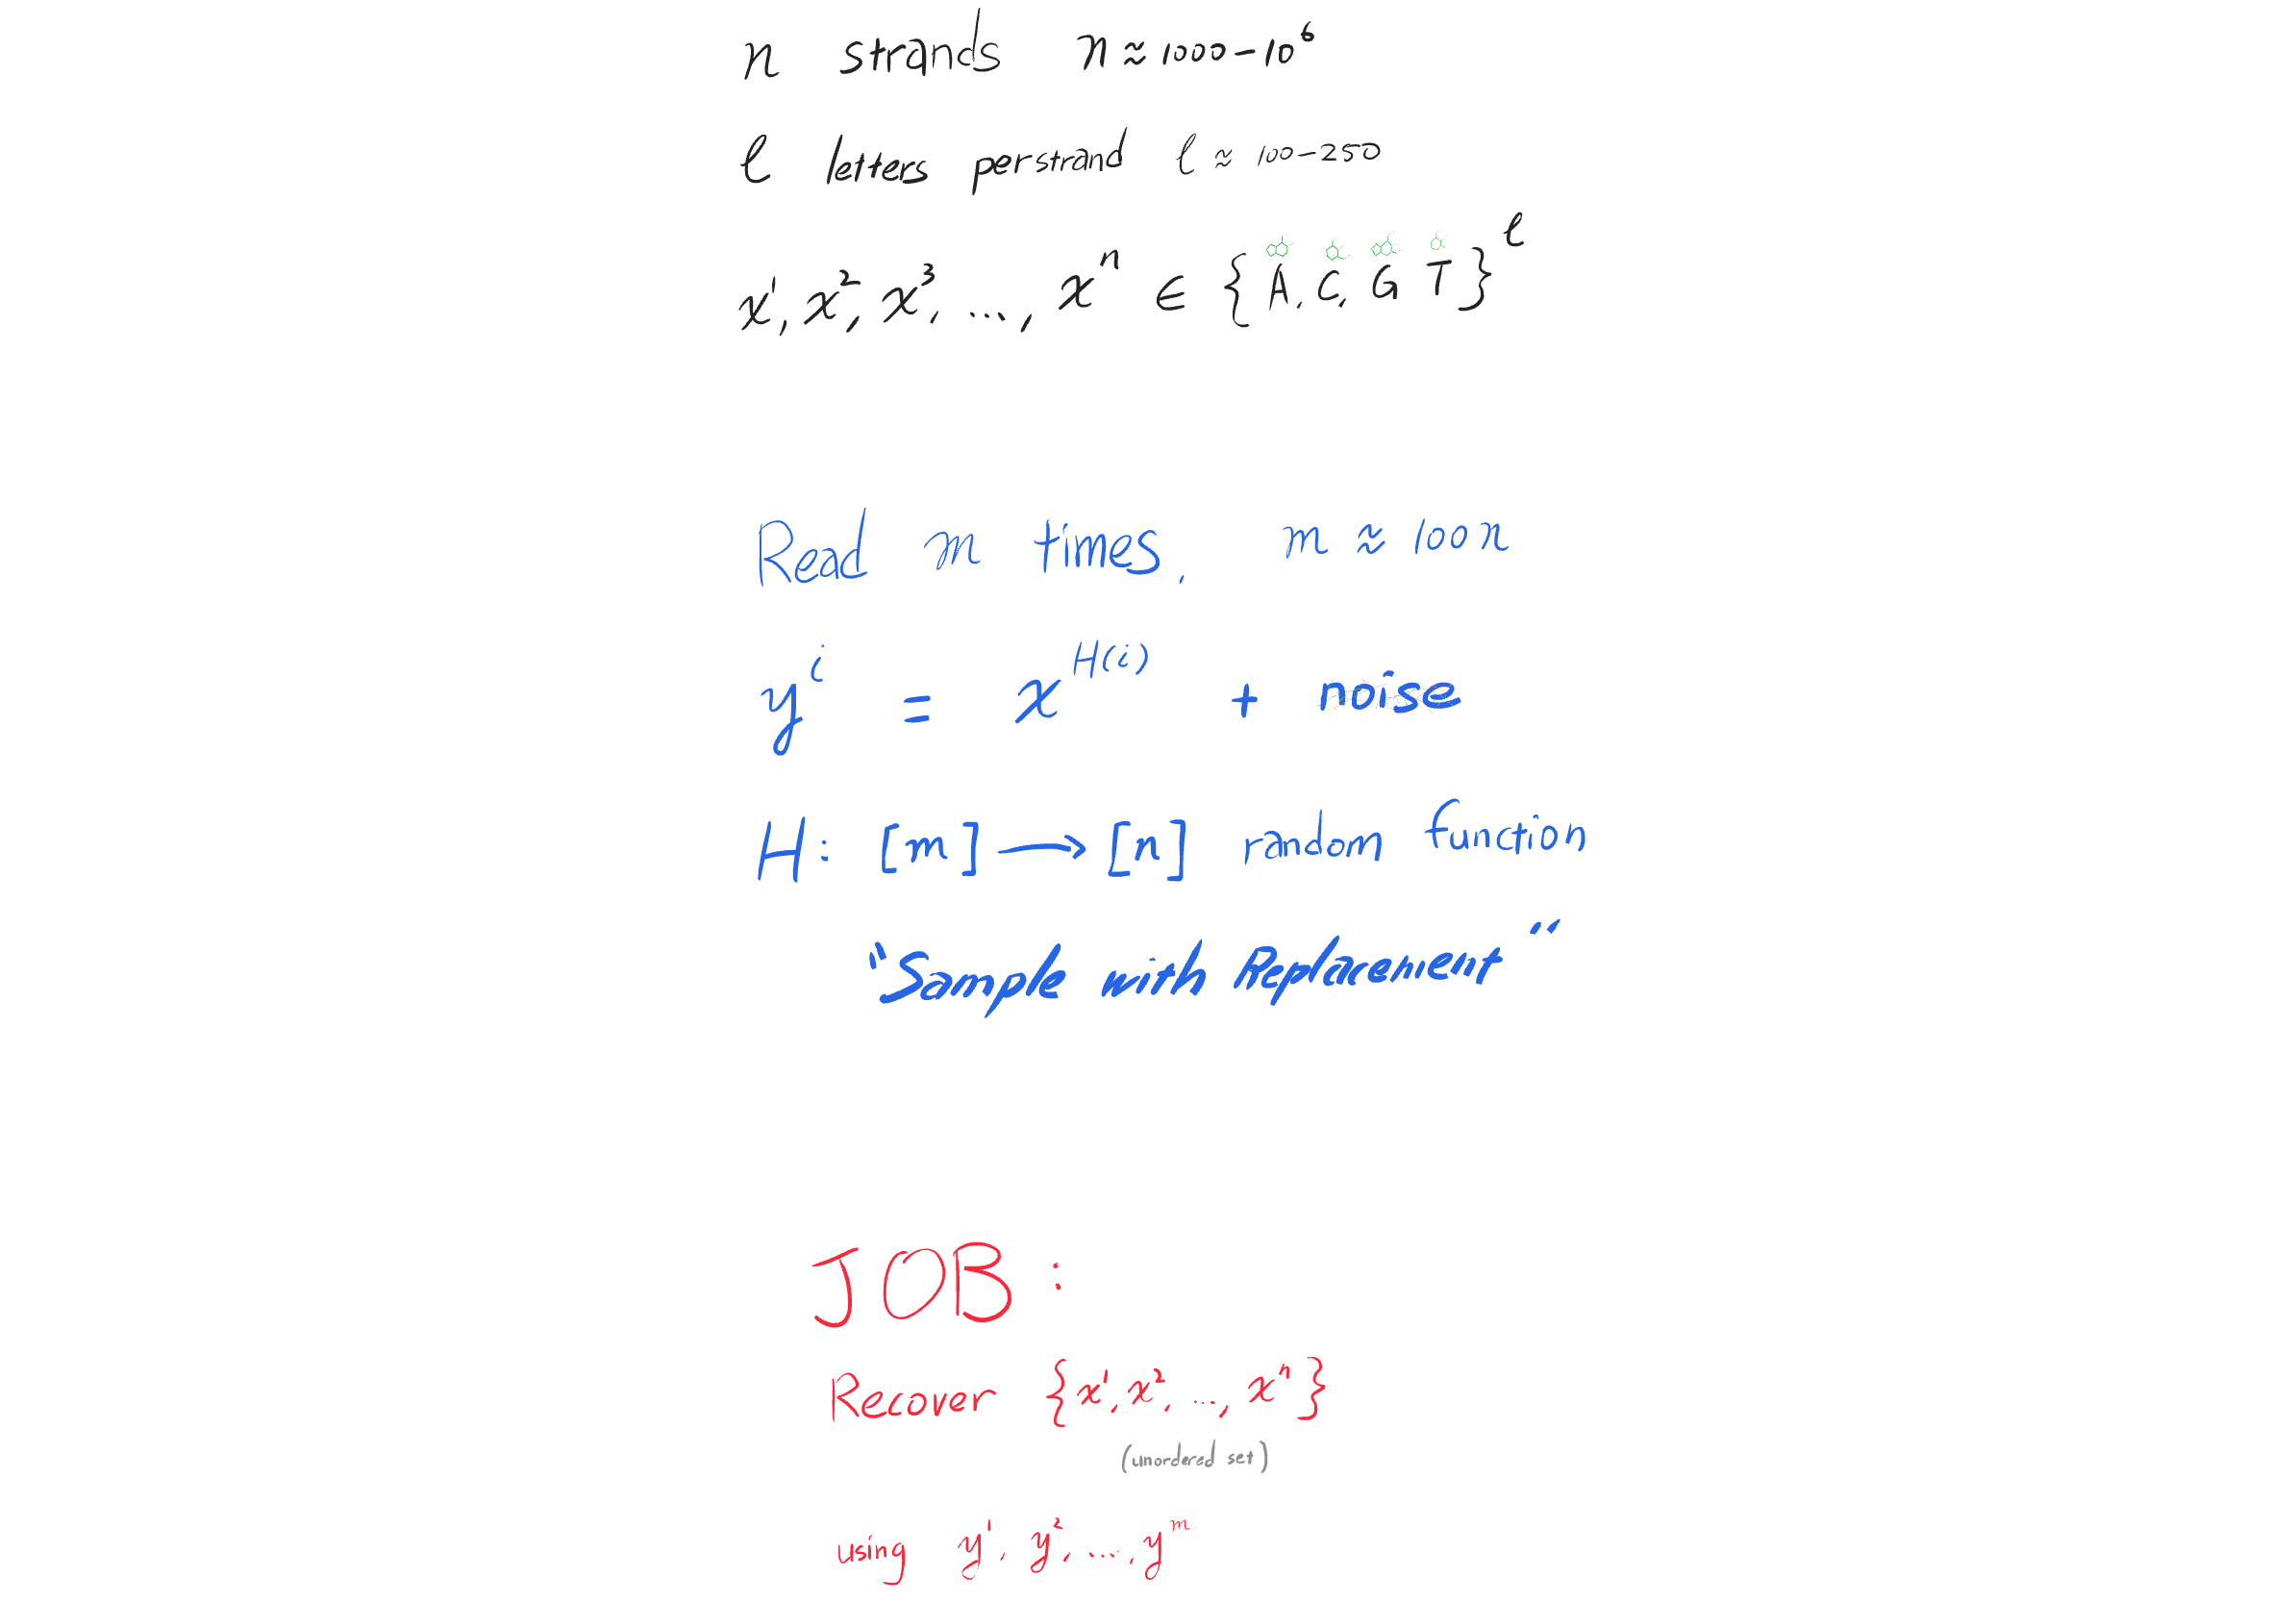 n strands n ≈ 1000-10⁶
ℓ letters per strand ℓ ≈ 100-250
x¹, x², x³, ..., xⁿ ∈ {A, C, G T}^ℓ
Read m times, m ≈ 100n
y^i = x^H(i) + noise
H: [m] → [n] random function
"Sample with Replacement"
JOB:
Recover {x¹, x², ..., xⁿ}
(unordered set)
using y¹, y², ..., y^m